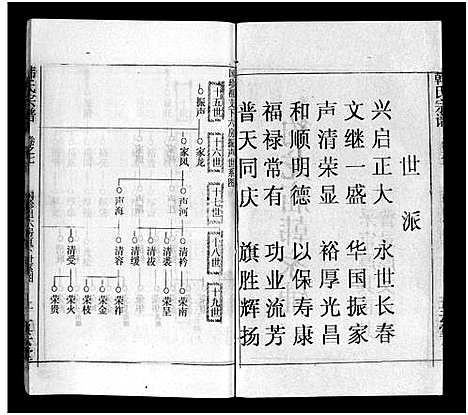 世派
兴启正大 永世长春
文继一盛 华国振家
声清荣显 裕厚光昌
和顺明德 以保寿康
福禄常有 功业流芳
普天同庆 旗胜辉扬
韩氏宗谱
国珍祖支下六房振声世系图
十五世
振声
十六世
家龙
家凤
十七世
声河
声海
十八世
清衿
清祓
清裱
清容
清受
十九世
荣南
荣呈
荣祚
荣金
荣枝
荣火
荣贵
韩氏宗谱
卷之七